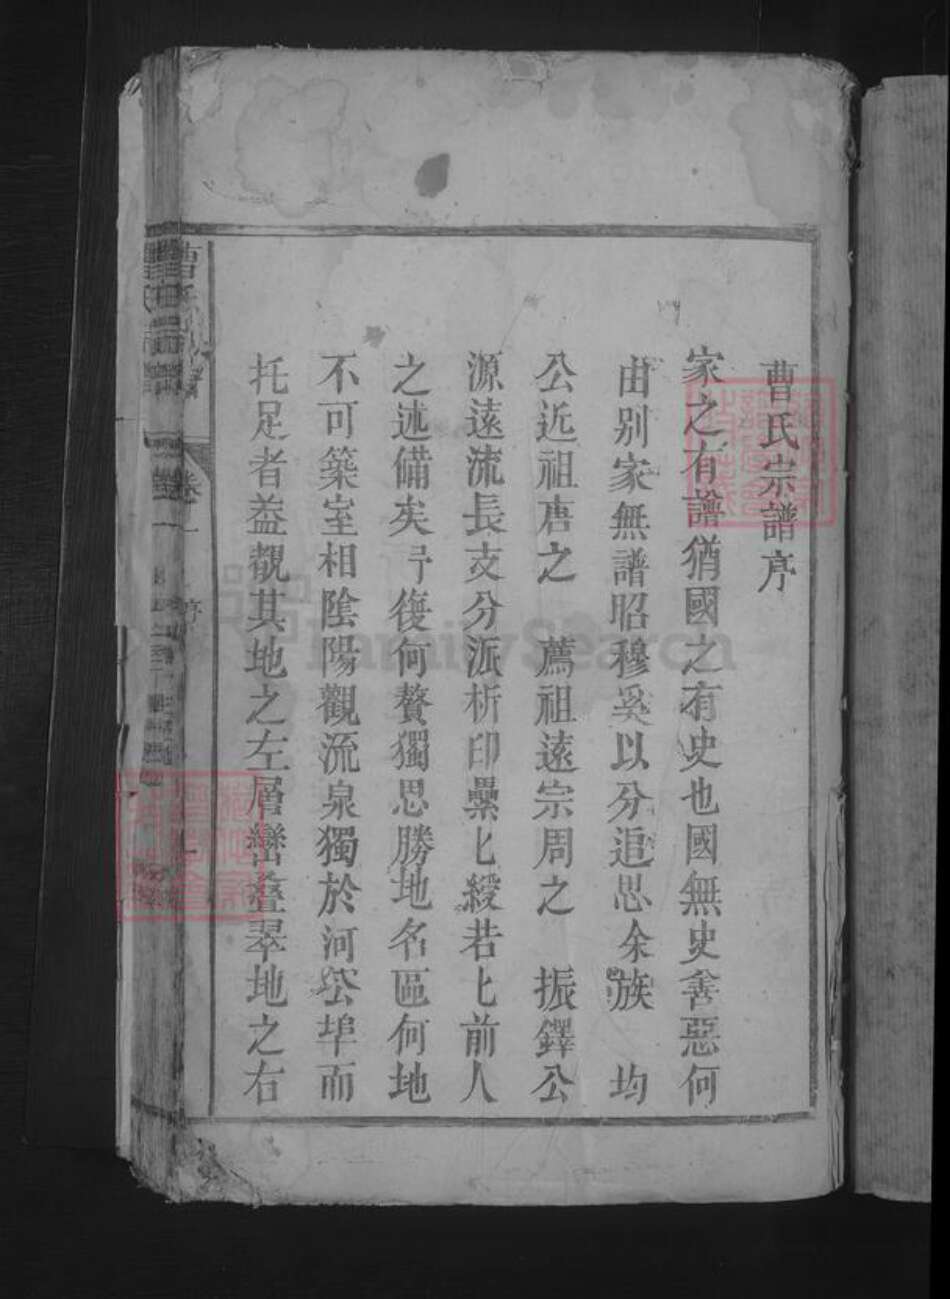 曹氏宗譜序
家之有譜猶國之有史也國無史善惡何
由别家無譜昭穆奚以分追思余族　均
公近祖唐之　薦祖遠宗周之　振鐸公
源遠流長支分派析印纍匕綬若匕前人
之述備矣予復何贅獨思勝地名區何地
不可築室相陰陽觀流泉獨於河公埠而
托足者益覩其地之左層巒叠翠地之右
卷一
序
FamilySearch